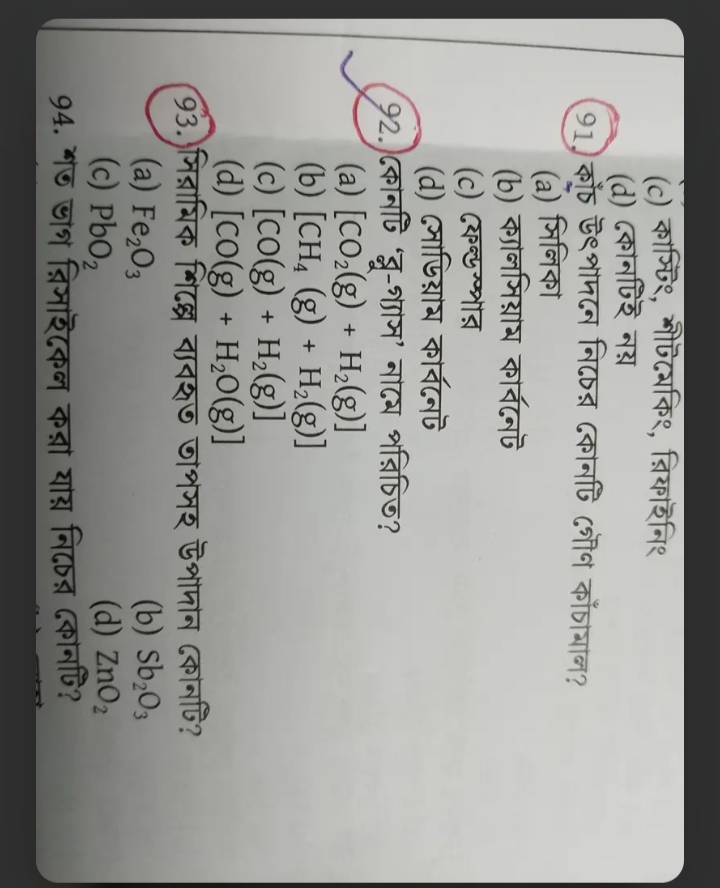 (c) কাস্টিং, শীটমেকিং, রিফাইনিং
(d) কোনটিই নয়
91. কাঁচ উৎপাদনে নিচের কোনটি গৌণ কাঁচামাল?
(a) সিলিকা
(b) ক্যালসিয়াম কার্বনেট
(c) ফেল্ডস্পার
(d) সোডিয়াম কার্বনেট
92. কোনটি ‘ব্লু-গ্যাস’ নামে পরিচিত?
(a) [CO₂(g) + H₂(g)]
(b) [CH₄ (g) + H₂(g)]
(c) [CO(g) + H₂(g)]
(d) [CO(g) + H₂O(g)]
93. সিরামিক শিল্পে ব্যবহৃত তাপসহ উপাদান কোনটি?
(a) Fe₂O₃ (b) Sb₂O₃
(c) PbO₂ (d) ZnO₂
94. শত ভাগ রিসাইকেল করা যায় নিচের কোনটি?